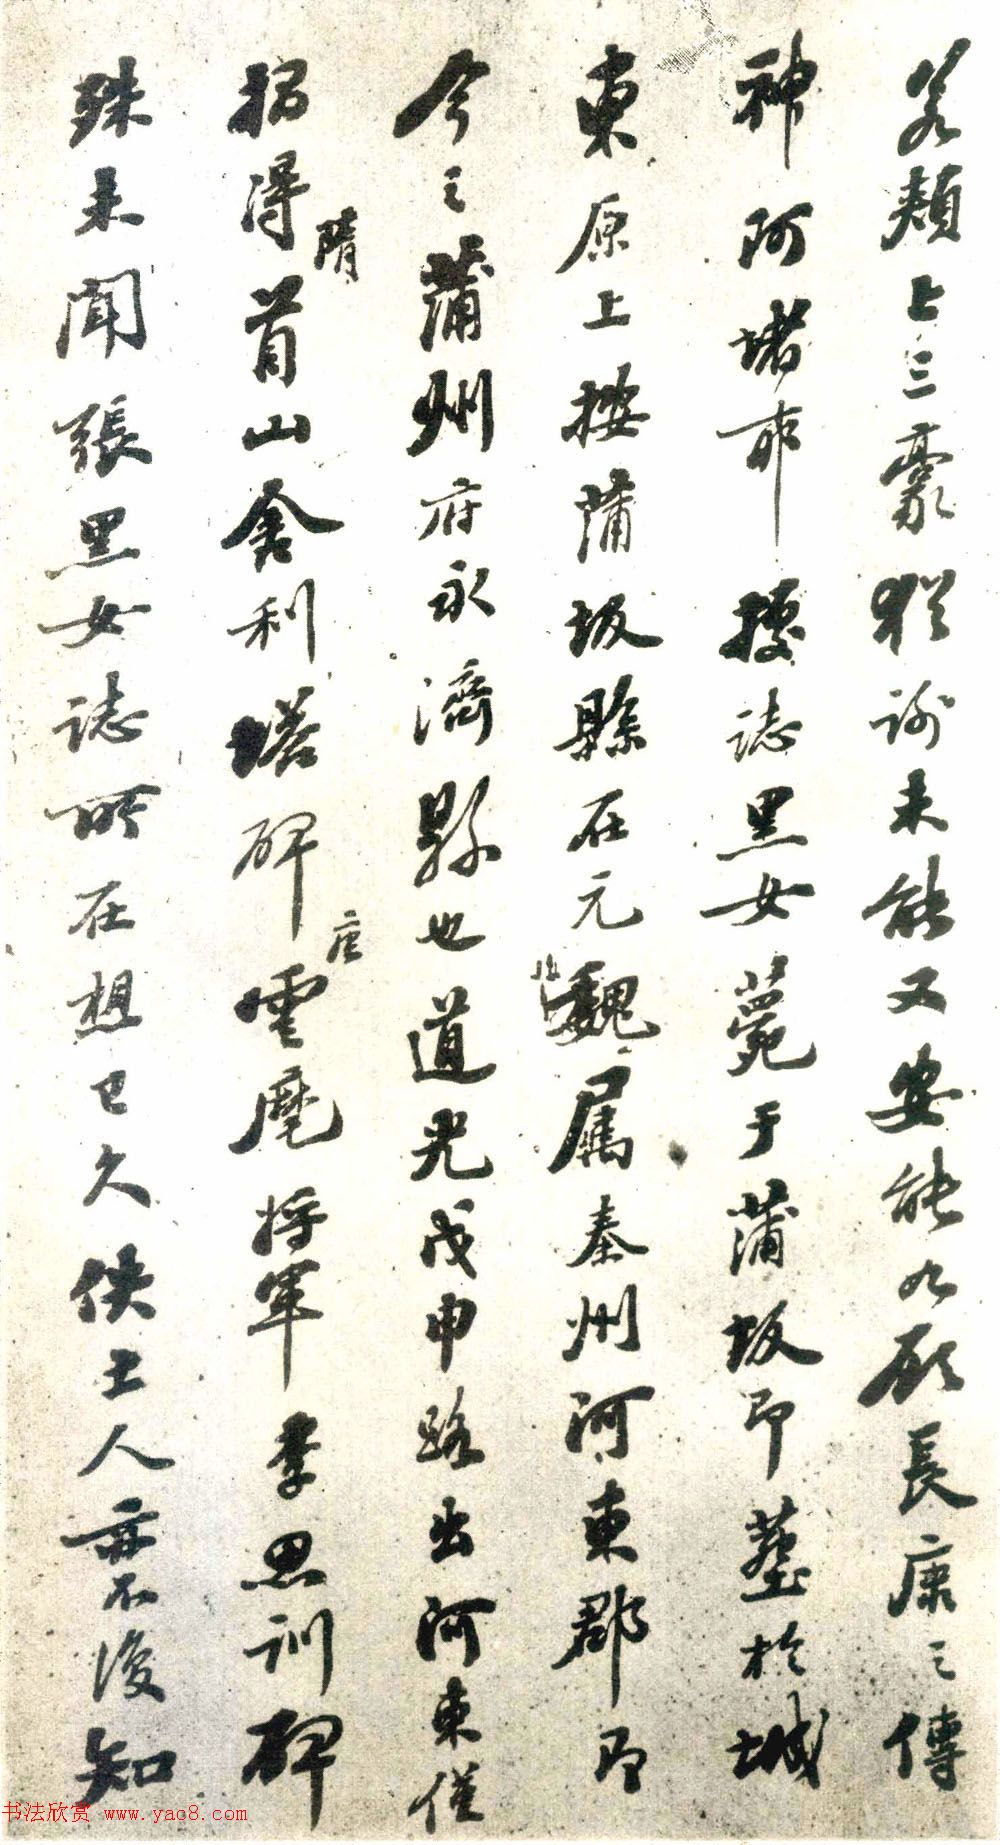 若頰上三豪猶謝未能又安能如顧長康之傳
神阿堵耶據誌黑女薨于蒲坂即葬於城
東原上按蒲坂縣在元魏屬秦州河東郡即
今之蒲州府永濟縣也道光戊申路出河東僅
搨得隋首山舍利塔碑唐雲麾將軍李思訓碑
殊未聞張黑女誌所在想已久佚土人亦不復知
书法欣赏 www.yac8.com